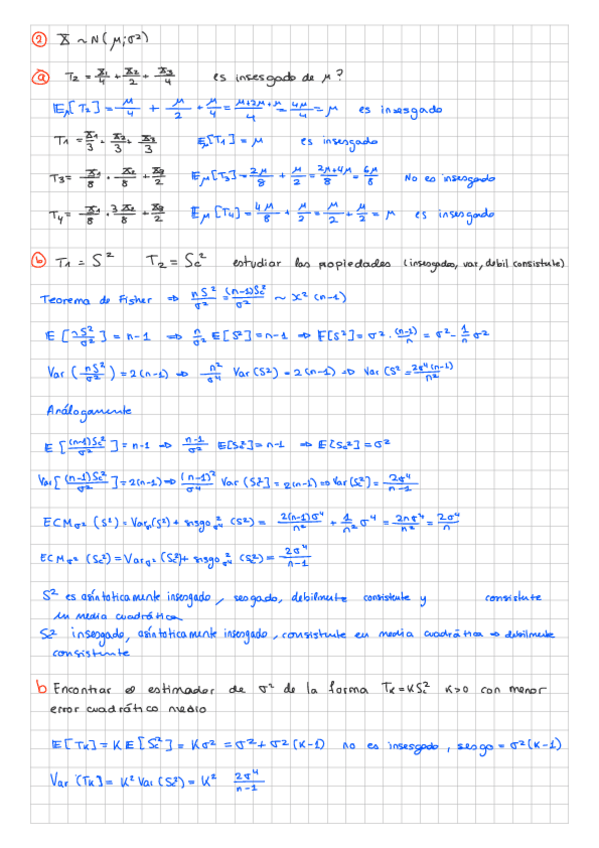 ② X ~ N(μ; σ²)
ⓐ T₂ = X₁/4 + X₂/2 + X₃/4 es insesgado de μ?
E_μ[T₂] = μ/4 + μ/2 + μ/4 = (μ+2μ+μ)/4 = 4μ/4 = μ es insesgado
T₁ = X₁/3 + X₂/3 + X₃/3 E_μ[T₁] = μ es insesgado
T₃ = X₁/8 + X₂/8 + X₃/2 E_μ[T₃] = 2μ/8 + μ/2 = (2μ+4μ)/8 = 6μ/8 No es insesgado
T₄ = X₁/8 + 3X₂/8 + X₃/2 E_μ[T₄] = 4μ/8 + μ/2 = μ/2 + μ/2 = μ es insesgado
ⓑ T₁ = S² T₂ = Sc² estudiar las propiedades (insesgados, var, debil consistente)
Teorema de Fisher ⇒ nS²/σ² = (n-1)Sc²/σ² ~ x² (n-1)
E[nS²/σ²] = n-1 ⇒ n/σ² E[S²] = n-1 ⇒ E[S²] = σ² · (n-1)/n = σ² - 1/n σ²
Var (nS²/σ²) = 2(n-1) ⇒ n²/σ⁴ Var (S²) = 2(n-1) ⇒ Var (S² = 2σ⁴(n-1)/n²
Análogamente
E [(n-1)Sc²/σ²] = n-1 ⇒ (n-1)/σ² E[Sc²] = n-1 ⇒ E[Sc²] = σ²
Var [(n-1)Sc²/σ²] = 2(n-1) ⇒ (n-1)²/σ⁴ Var (Sc²) = 2(n-1) ⇒ Var (Sc²) = 2σ⁴/(n-1)
ECM_σ² (S²) = Var_σ²(S²) + sesgo²_σ² (S²) = 2(n-1)σ⁴/n² + 1/n² σ⁴ = 2nσ⁴/n² = 2σ⁴/n
ECM_σ² (Sc²) = Var_σ² (Sc²) + sesgo²_σ² (Sc²) = 2σ⁴/(n-1)
S² es asíntoticamente insesgado, sesgado, debilmente consistente y consistente
en media cuadrática
Sc² insesgado, asíntoticamente insesgado, consistente en media cuadrática ⇒ debilmente
consistente
b Encontrar el estimador de σ² de la forma T_K = KSc² K>0 con menor
error cuadrático medio
E[T_K] = K E[Sc²] = Kσ² = σ² + σ²(K-1) no es insesgado, sesgo = σ²(K-1)
Var (T_K) = K² Var (Sc²) = K² 2σ⁴/(n-1)